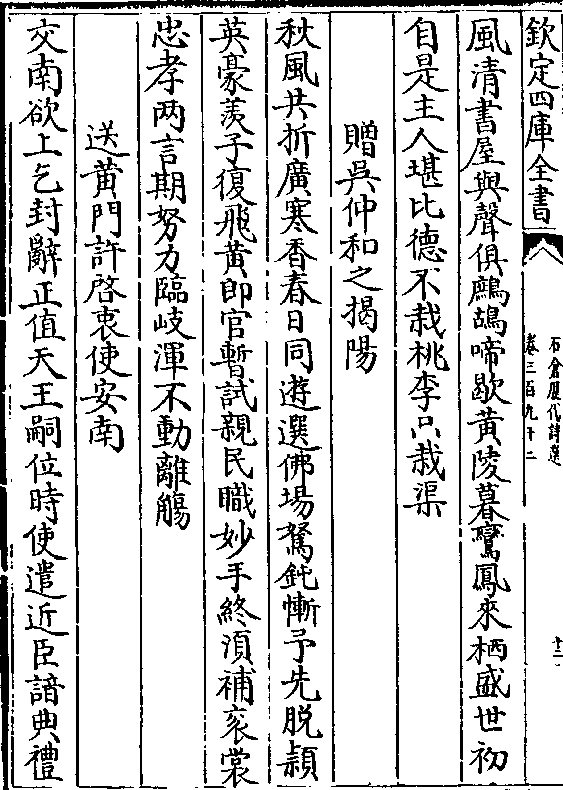 欽定四庫全書
石倉歷代詩選
卷三百九十二
十二
風清書屋與聲俱鷓鴣啼歇黄陵暮鸞鳳來栖盛世初
自是主人堪比德不栽桃李只栽渠
贈吳仲和之揭陽
秋風共折廣寒香春日同遊選佛場駑鈍慚予先脱頴
英豪羨子復飛黄即官暫試親民職妙手終須補衮裳
忠孝两言期努力臨岐渾不動離觴
送黄門許啓衷使安南
交南欲上乞封辭正值天王嗣位時使遣近臣諳典禮